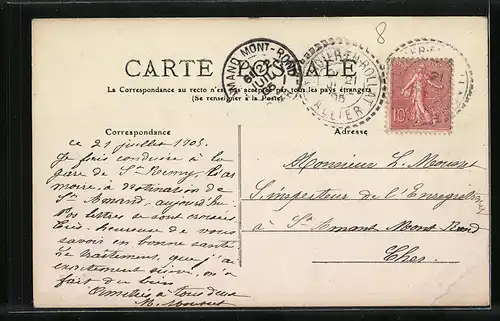 8
CARTE POSTALE
La Correspondance au recto n'est pas acceptée par tous les pays étrangers
(Se renseigner à la Poste)
MONT-ROND
ALLIER
10
Correspondance
Adresse
ce 21 juillet 1905.
Je fais conduire à la
gare de St Remy,
moire, à destination de
St Amand, aujourd'hui.
Vos lettres se sont croisées.
Très heureuse de vous
savoir en bonne santé
Le traitement, que j'ai
exactement suivi, m'a
fait du bien
Amitiés à tous deux
M. Mousset
Monsieur L. Mousset
S. inspecteur de l'Enregistr
à St Amand Mont Rond
Cher.